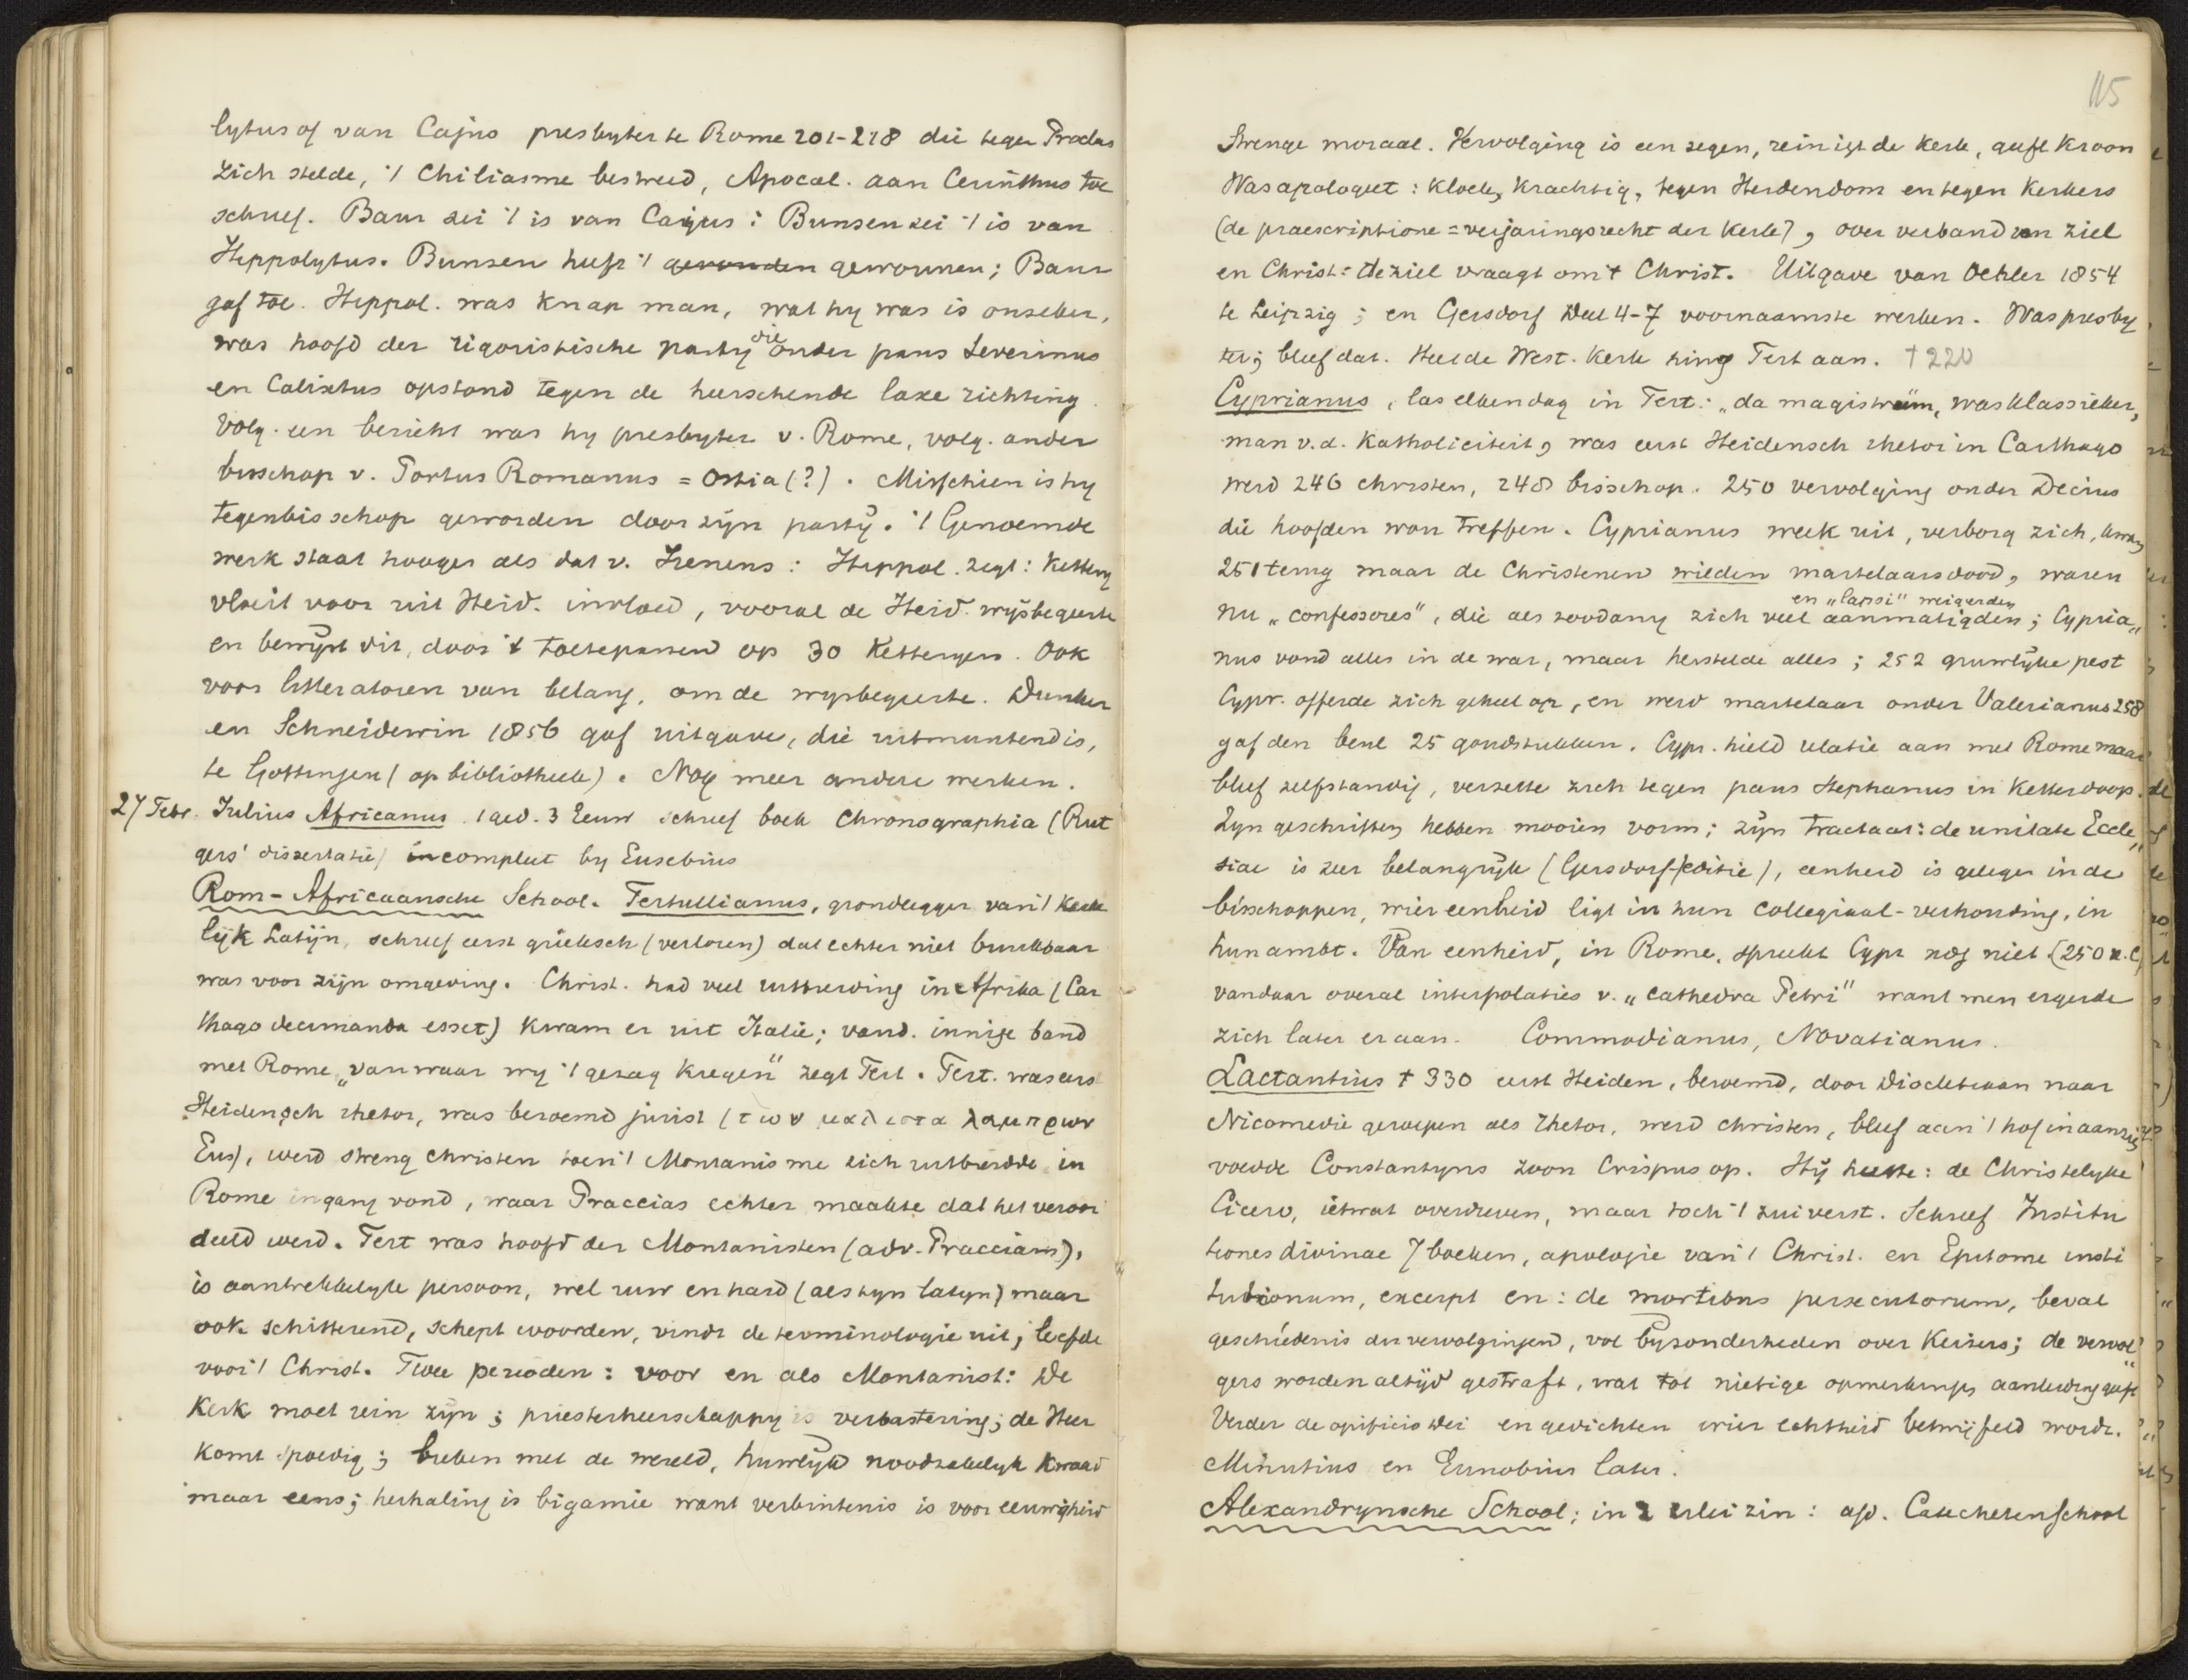 lytus of van Cajus presbyter te Rome 201-218 die tegen Proclus
zich stelde, 't Chiliasme bestreed, Apocal. aan Cerinthus toe
schreef. Baur zei 't is van Cajus: Bunsen zei 't is van
Hippolytus. Bunsen heeft 't gevonden gewonnen; Baur
gaf toe. Hippol. was knap man, wat hy was is onzeker,
was hoofd der rigoristische party die onder paus Severinus
en Calixtus opstond tegen de heerschende laxe richting.
Volg. een bericht was hy presbyter v. Rome, volg. ander
bisschop v. Portus Romanus = Ostia (?). Misschien is hy
tegenbisschop geworden door zyn party. 't Genoemde
werk staat hooger als dat v. Irenens: Hippol. zegt: Kettery
vloeit voor uit Heid. invloed, vooral de Heid. wysbegeerte
en bewyst dit, door 't toetepassen op 30 Ketteryen. Ook
voor litteratoren van belang, om de wysbegeerte. Dunker
en Schneidewin 1856 gaf uitgave, die uitmuntend is,
te Gottingen (op bibliotheek). Nog meer andere werken.
27 Febr. Julius Africanus 1 ged. 3 Eeuw schreef boek Chronographia (Rut
gers' dissertatie) incompleet by Eusebius
Rom-Africaansche School. Tertullianus, grondlegger van 't Kerke
lyk Latyn, schreef eerst grieksch (verloren) dat echter niet bruikbaar
was voor zyn omgeving. Christ. had veel uitbreiding in Afrika (Car
thago decimanda esset) kwam er uit Italie; vand. innige band
met Rome „van waar wy 't gezag kregen" zegt Tert. Tert. was eerst
Heidensch rhetor, was beroemd jurist (των μαλιστα λαμπρων
Eus), werd streng christen toen 't Montanisme zich uitbreidde in
Rome ingang vond, waar Praccias echter maakte dat het veroor
deeld werd. Tert was hoofd der Montanisten (adv. Pracciam),
is aantrekkelyk persoon, wel ruw en hard (als zyn latyn) maar
ook schitterend, schept woorden, vindt de terminologie uit; leefde
voor 't Christ. Twee perioden: voor en als Montanist: De
Kerk moet rein zyn; priesterheerschappy is verbastering; de Heer
komt spoedig; breken met de wereld, huwelyk noodzakelyk kwaad
maar eens; herhaling is bigamie want verbintenis is voor eeuwigheid
115
Strenge moraal. Vervolging is een zegen, reinigt de Kerk, geeft Kroon
Was apologeet: kloek, krachtig, tegen Heidendom en tegen Ketters
(de praescriptione = verjaringsrecht der Kerk), over verband van ziel
en Christ: de ziel vraagt om 't Christ. Uitgave van Oehler 1854
te Leipzig; en Gersdorf Deel 4-7 voornaamste werken. Was presby
ter; bleef dat. Heel de West. Kerk hing Tert aan. † 220
Cyprianus, las elken dag in Tert: „da magistrum, was klassieker,
man v.d. Katholiciteit, was eerst Heidensch rhetor in Carthago
werd 246 christen, 248 bisschop. 250 vervolging onder Decius
die hoofden wou treffen. Cyprianus week uit, verborg zich, kwam
251 terug maar de Christenen wilden martelaarsdood, waren
nu „confessores", die als zoodanig zich veel aanmatigden en „lapsi" weigerden; Cypria„
nus vond alles in de war, maar herstelde alles; 252 gruwlyke pest
Cypr. offerde zich geheel op, en werd martelaar onder Valerianus 258
gaf den beul 25 goudstukken. Cypr. hield relatie aan met Rome maar
bleef zelfstandig, verzette zich tegen paus Stephanus in Ketterdoop.
Zyn geschriften hebben mooien vorm; zyn tractaat: de unitate Eccle„
siae is zeer belangryk (Gersdorf-editie), eenheid is gelegen in de
bisschoppen, wier eenheid ligt in hun collegiaal-verhouding, in
hun ambt. Van eenheid, in Rome, spreekt Cypr nog niet (250 n.C)
vandaar overal interpolaties v. „cathedra Petri" want men ergerde
zich later er aan. Commodianus, Novatianus.
Lactantius † 330 eerst Heiden, beroemd, door Diocletiaan naar
Nicomedie geroepen als rhetor, werd christen, bleef aan 't hof in aanzien
voedde Constantyns zoon Crispus op. Hy heette: de Christelyke
Cicero, ietwat overdreven, maar toch 't zuiverst. Schreef Institu
tiones divinae 7 boeken, apologie van 't Christ. en Epitome insti
tutionum, excerpt en: de mortibus persecutorum, bevat
geschiedenis der vervolgingen, vol byzonderheden over Keizers; de vervol„
gers worden altyd gestraft, wat tot nietige opmerkings aanleiding geeft
Verder de opificio Dei en gedichten wier echtheid betwyfeld wordt.
Minutius en Ernobius later.
Alexandrynsche School; in 2 erlei zin: a/d. Catechetenschool